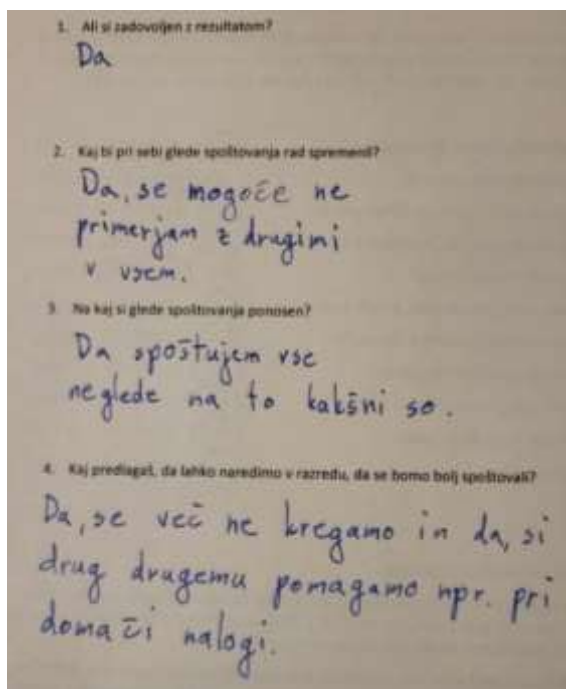 1. Ali si zadovoljen z rezultatom?
Da
2. Kaj bi pri sebi glede spoštovanja rad spremenil?
Da, se mogoče ne
primerjam z drugimi
v vsem.
3. Na kaj si glede spoštovanja ponosen?
Da spoštujem vse
neglede na to kakšni so.
4. Kaj predlagaš, da lahko naredimo v razredu, da se bomo bolj spoštovali?
Da, se več ne kregamo in da, si
drug drugemu pomagamo npr. pri
domači nalogi.